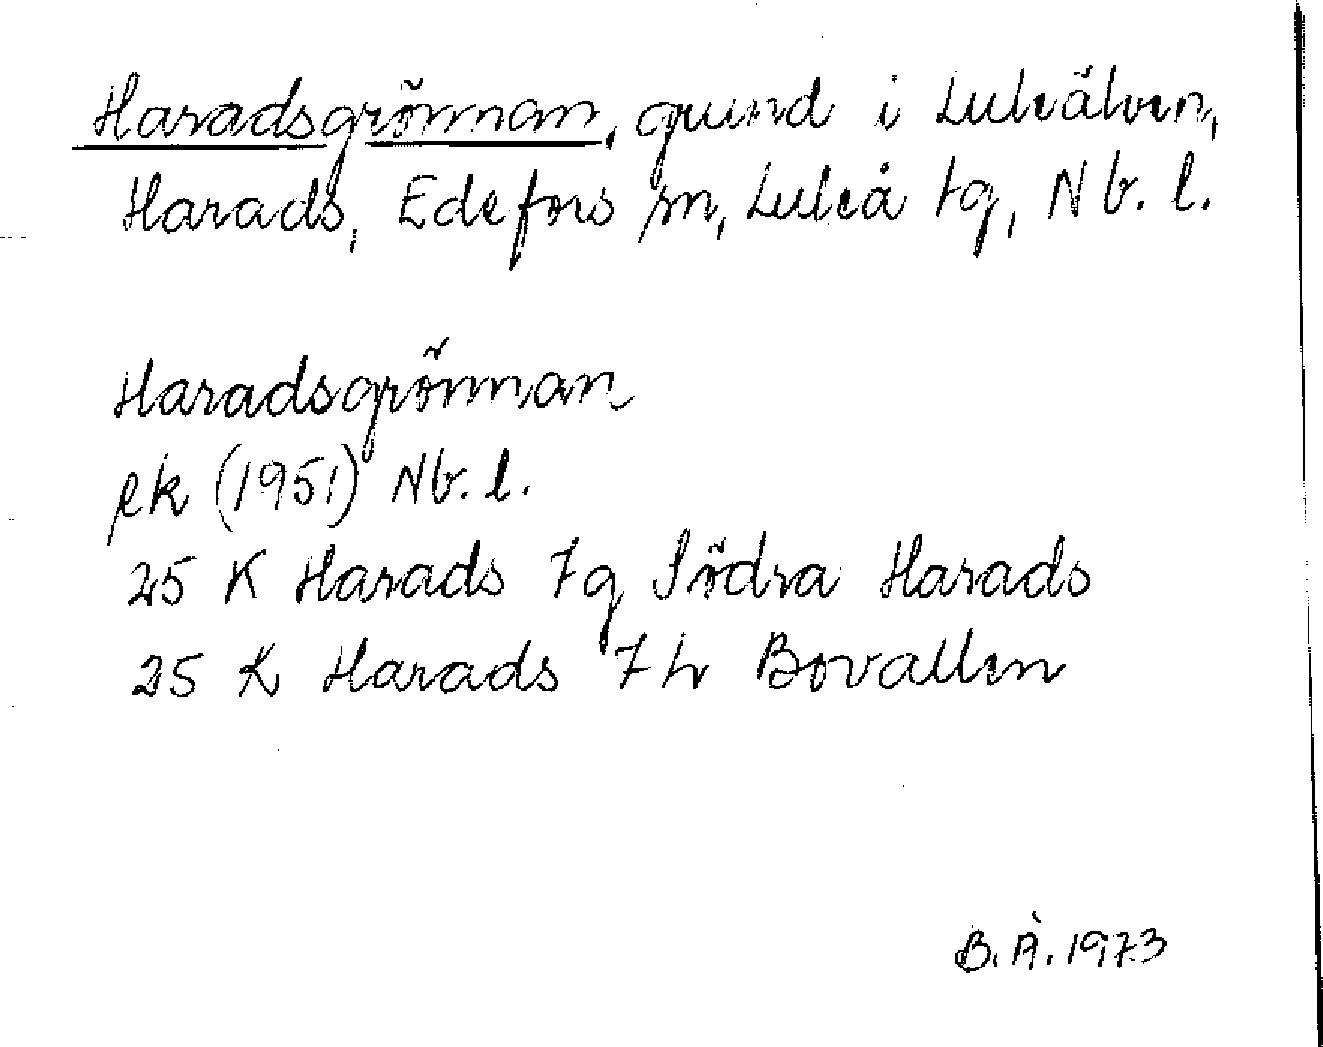 Haradsgrönnan, grund i Luleälven,
Harads, Edefors sn, Luleå tg, Nb. l.
Haradsgrönnan
ek (1951) Nb. l.
25 K Harads 7g Södra Harads
25 K Harads 7h Bovallen
B.Å. 1973